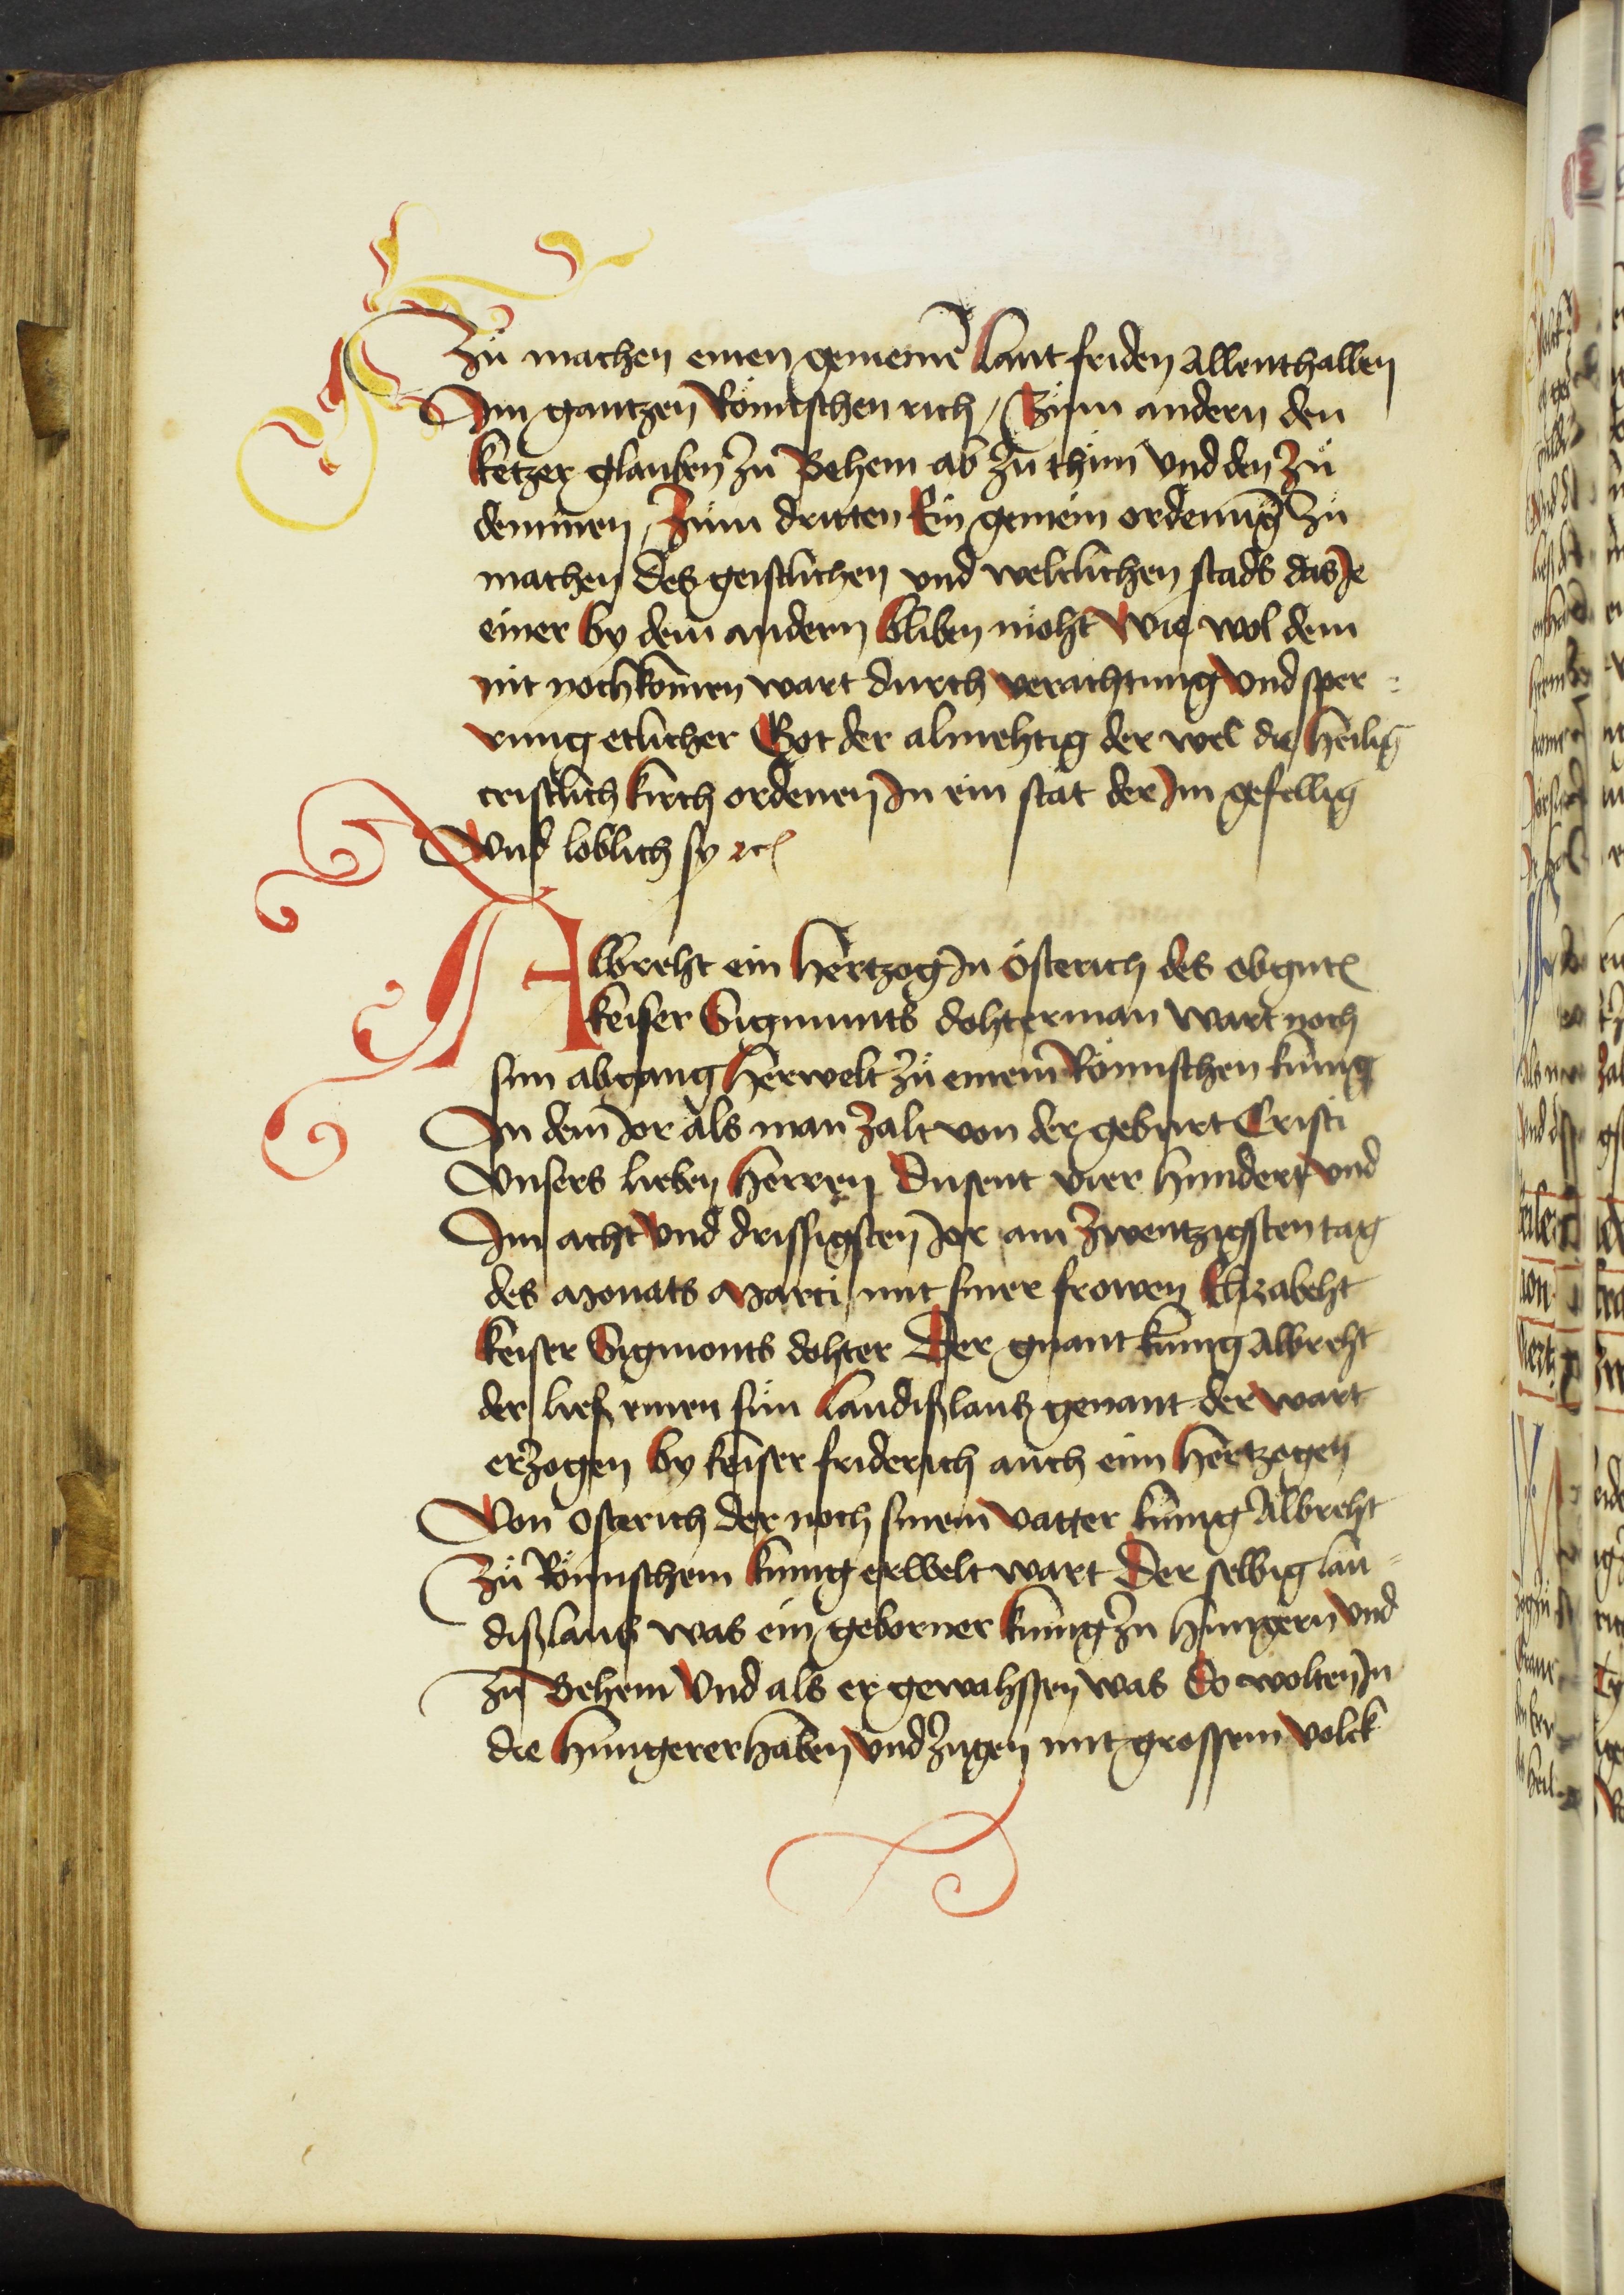 Zů machen einen gemeinē Lant friden allenthalben
Im gantzen Römischen rich / Zům andern den
ketzer glauben zu Behem ab zu thůn Vnd den zů
demmen / Zům dritten Ein gemein ordenūg zů
machen des geistlichen vnd weltlichen stads das Je
einer by dem andern bliben möht Wie wol dem
nit nochkōmen wart durch verachtung Vnd sper :
rung etlicher Got der almehtig der wel die heilig
cristlich kirch ordenen In ein stat der Im gefellig
Vnd loblich sy ⁊c
Albreht ein Hertzog In österich des obgnt
keiser Sigmunts dohterman Wart noch
sim abgang Herwelt zů einem Römischen kunig
In dem Jor als man zalt von der geburt Cristi
Vnsers lieben Herren Dusent vier hundert vnd
Im acht Vnd drissigsten Jor am zwentzigsten tag
des Monats Marci mit siner frowen Elizabeht
keiser Sigmonts dohter Der gnant kunig Albreht
der ließ einen sůn Landißlaus genant der wart
erzogen by keiser friderich auch eim Hertzogen
Von Osterich der noch sinem Vatter kunig Albreht
Zů Römischem kunig erwelt wart Der selbig lan =
dißlaus was ein geborner kunig zu Hungern Vnd
zu Behem Vnd als er gewahssen was Do wolten In
die Hungerer haben Vnd zugen mit grossem Volck